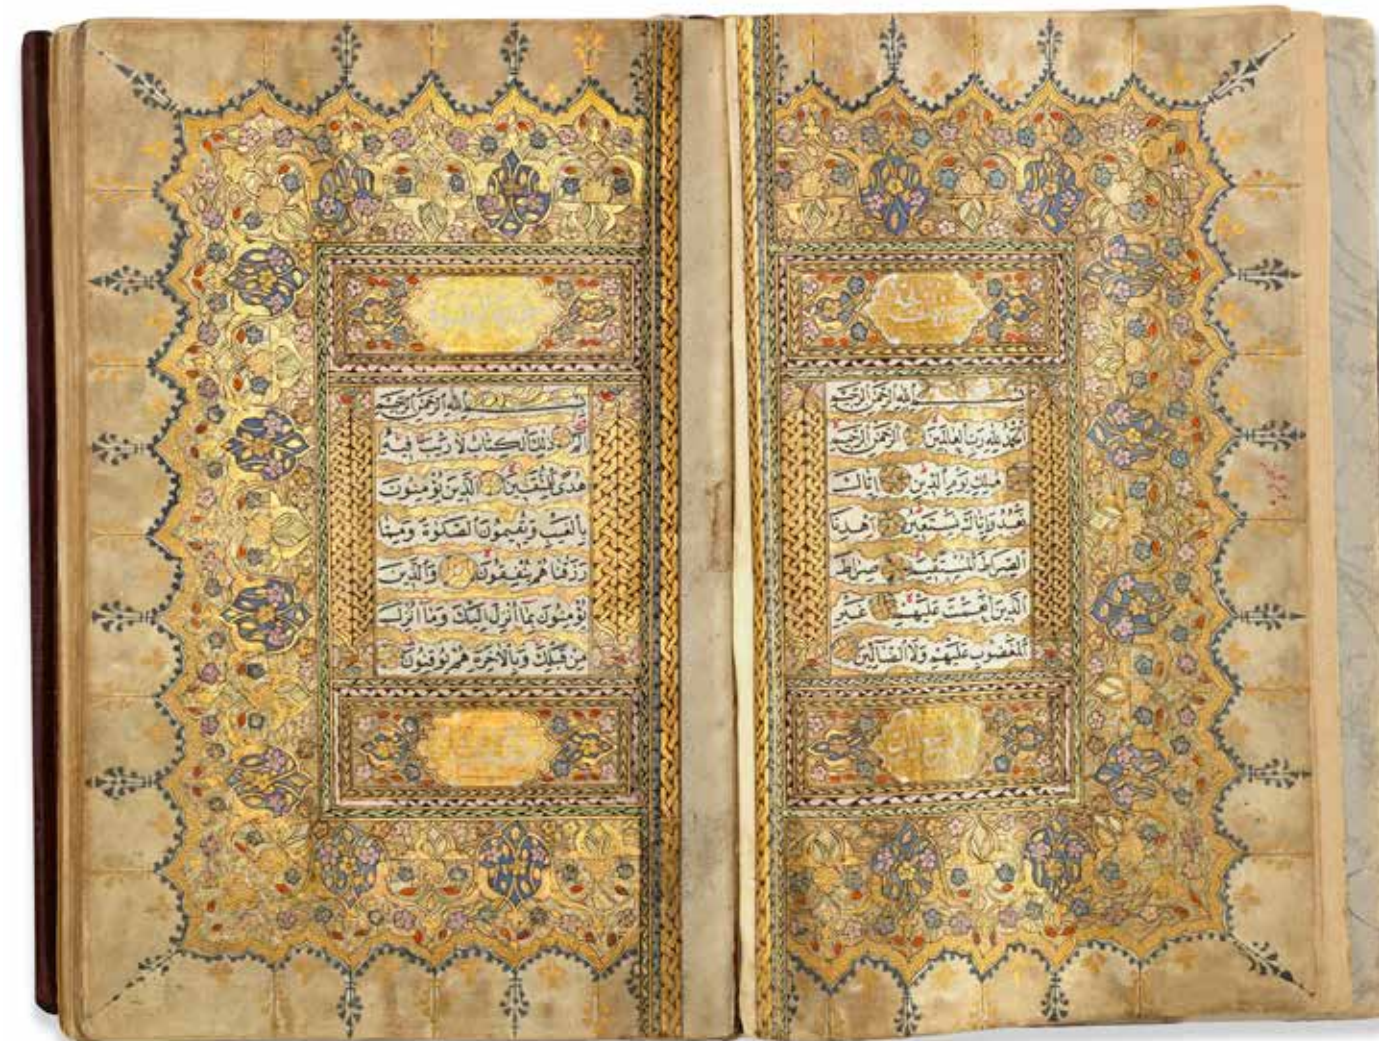 بسم الله الرحمن الرحيم
الحمد لله رب العالمين الرحمن الرحيم
ملك يوم الدين اياك
نعبد واياك نستعين اهدنا
الصراط المستقيم صراط
الذين انعمت عليهم غير
المغضوب عليهم ولا الضالين
بسم الله الرحمن الرحيم
الم ذلك الكتاب لا ريب فيه
هدى للمتقين الذين يؤمنون
بالغيب ويقيمون الصلوة ومما
رزقناهم ينفقون والذين
يؤمنون بما انزل اليك وما انزل
من قبلك وبالاخرة هم يوقنون